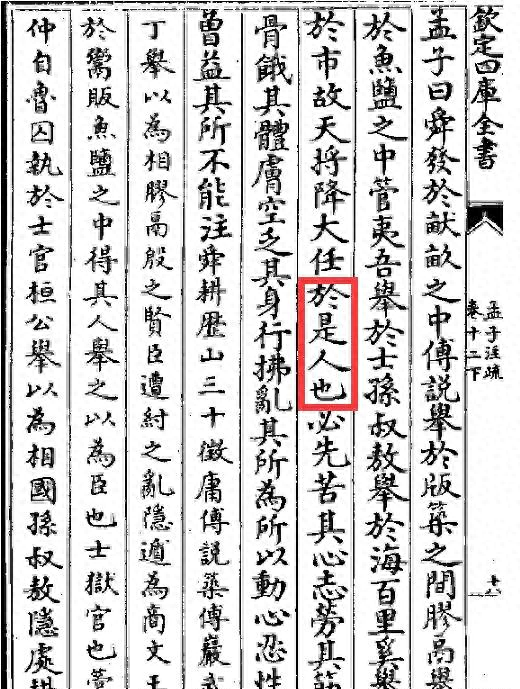 欽定四庫全書
孟子注疏
卷十二下
十六
孟子曰舜發於畎畝之中傅說舉於版築之間膠鬲舉
於魚鹽之中管夷吾舉於士孫叔敖舉於海百里奚舉
於市故天將降大任於是人也必先苦其心志勞其筋
骨餓其體膚空乏其身行拂亂其所為所以動心忍性
曾益其所不能注舜耕歷山三十徵庸傅說築傅巖武
丁舉以為相膠鬲殷之賢臣遭紂之亂隱遁為商文王
於鬻販魚鹽之中得其人舉之以為臣也士獄官也管
仲自魯囚執於士官桓公舉以為相國孫叔敖隱處耕